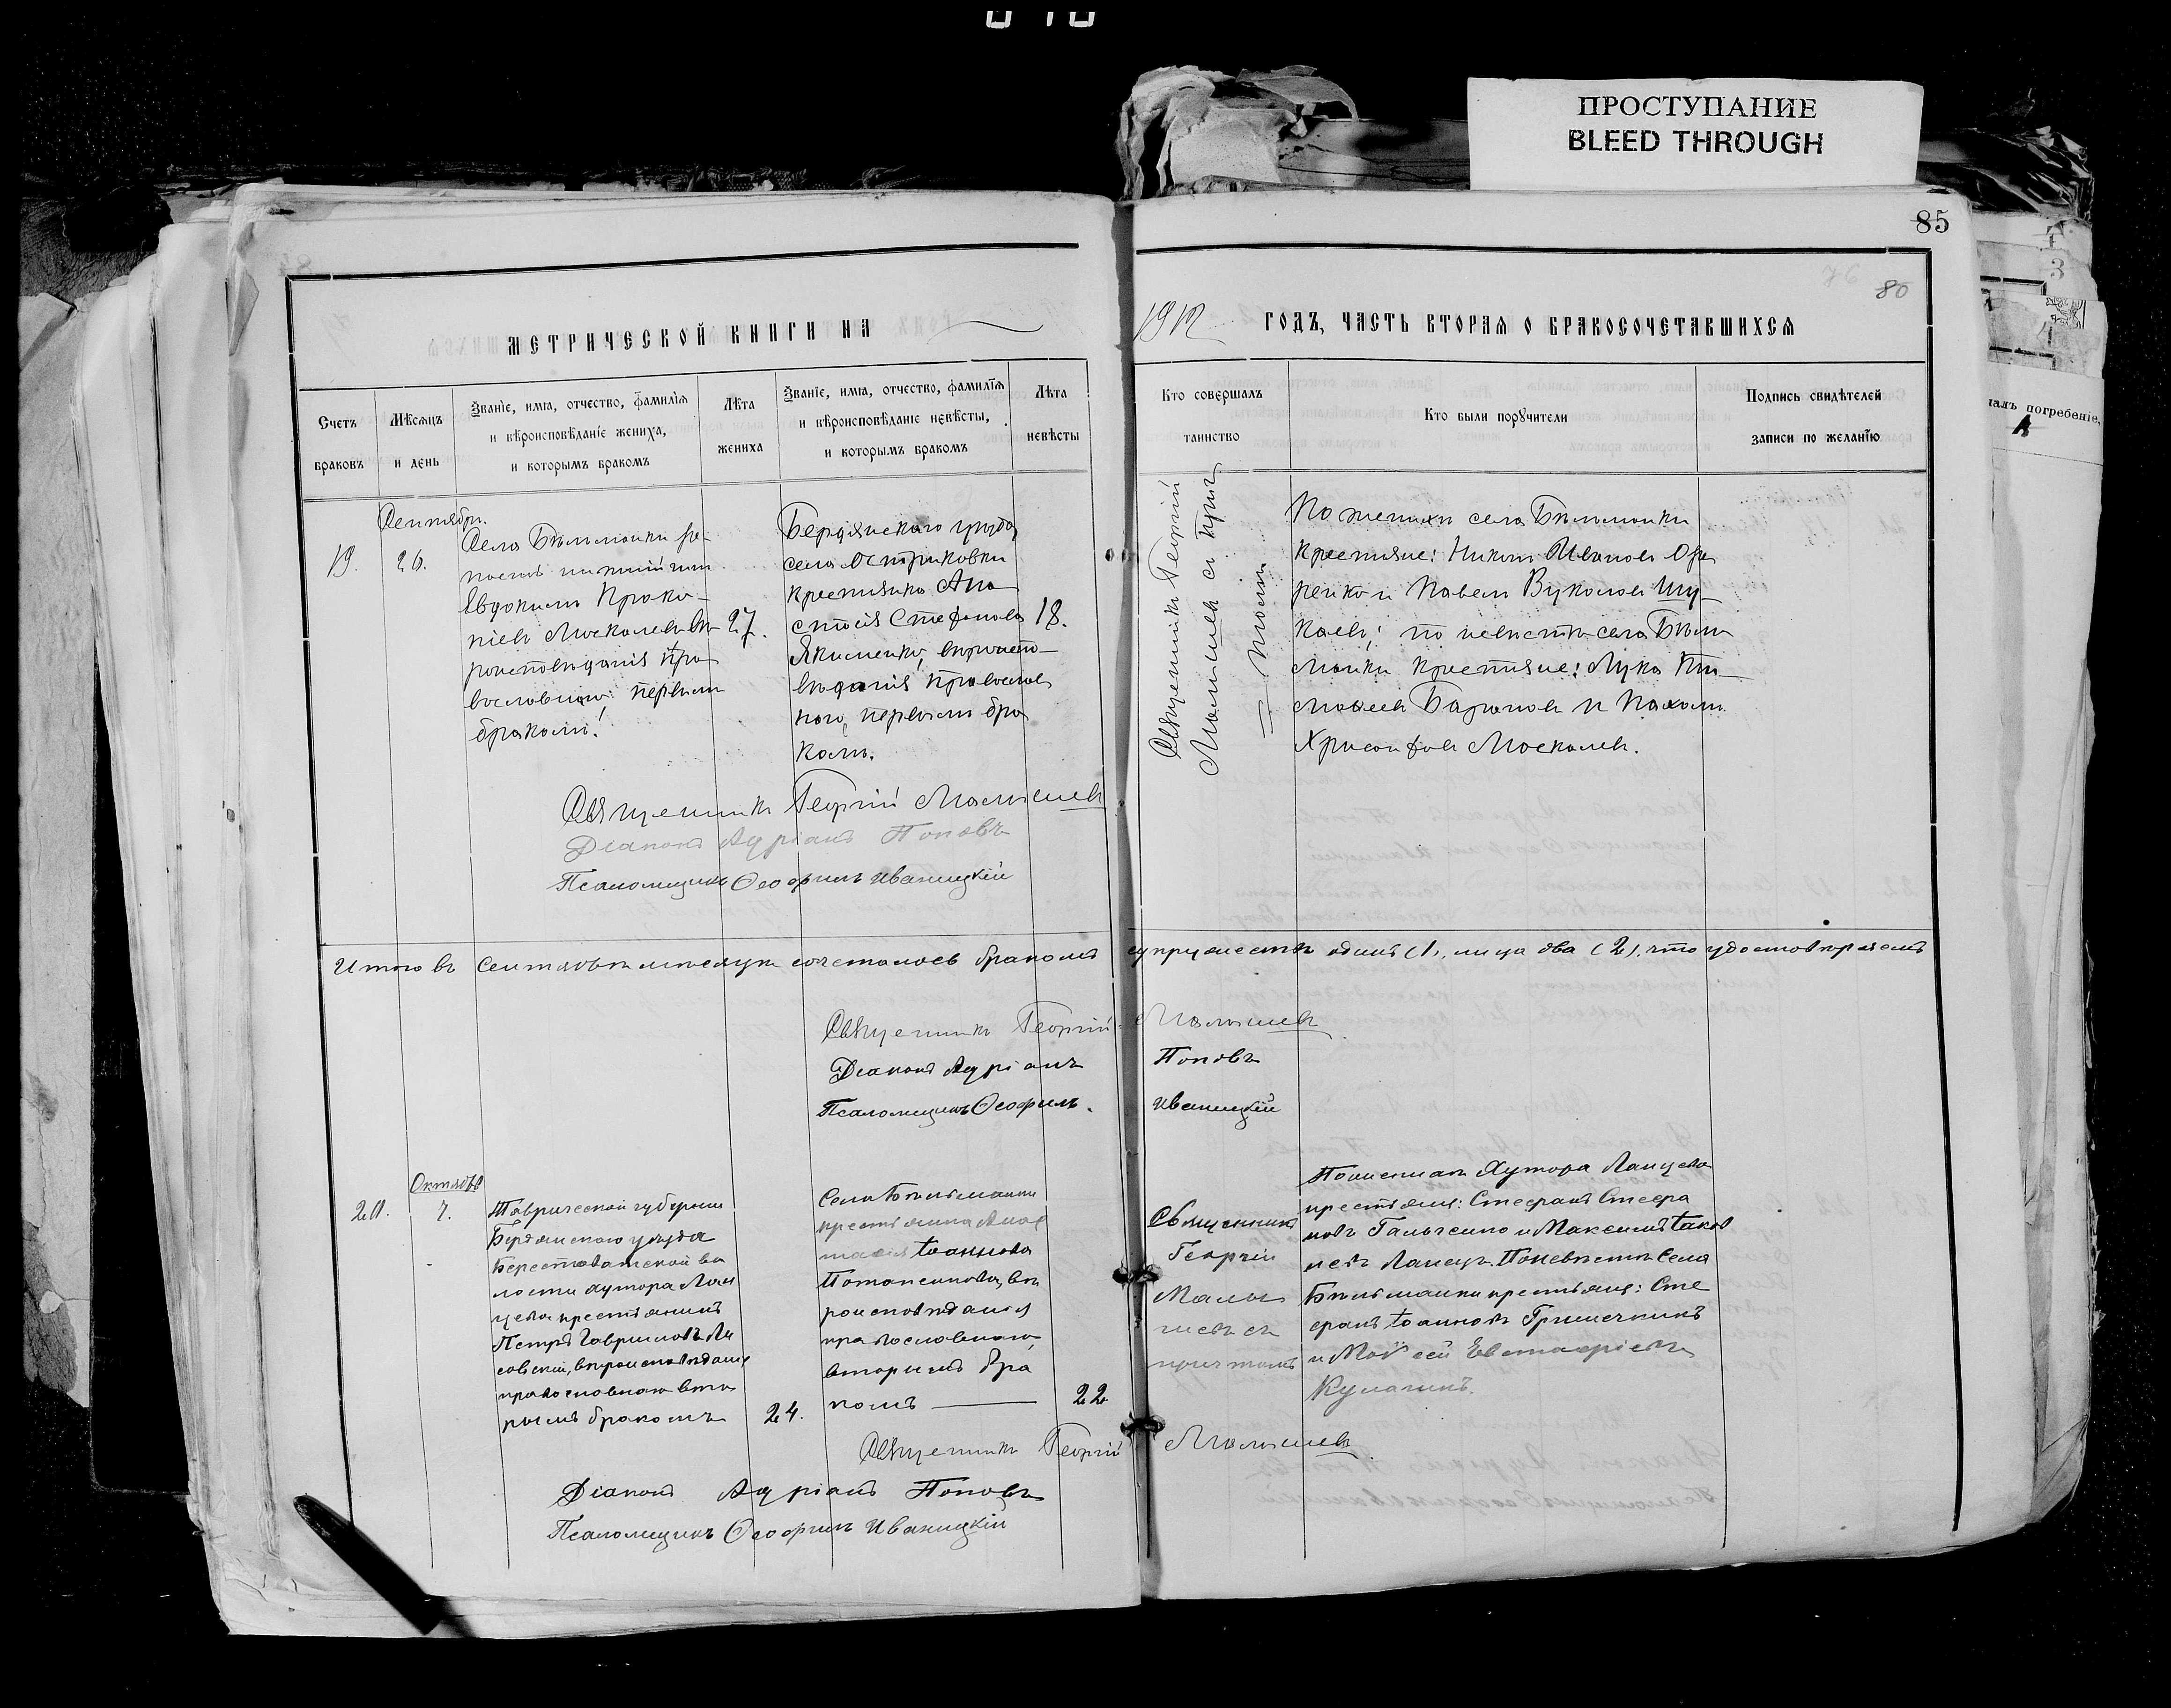 ПРОСТУПАНИЕ
BLEED THROUGH
85
80
МЕТРИЧЕСКОЙ КНИГИ НА
1912 ГОДЪ, ЧАСТЬ ВТОРАЯ О БРАКОСОЧЕТАВШИХСЯ
Счетъ
браковъ
Мѣсяцъ
и день
Званіе, имя, отчество, фамилія
и вѣроисповѣданіе жениха,
и которымъ бракомъ
Лѣта
жениха
Званіе, имя, отчество, фамилія
и вѣроисповѣданіе невѣсты,
и которымъ бракомъ
Лѣта
невѣсты
Кто совершалъ
таинство
Кто были поручители
Подпись свидѣтелей
записи по желанію
погребеніе.
19.
Сентябрь
26.
Села Бѣльманки
Евдокимъ Проко-
піевъ Москалевъ вѣ-
роисповѣданія пра-
вославнаго, первымъ
бракомъ.
27.
Бердянскаго уѣзда
села Остриковки
крестьянка Ана-
стасія Стефанова
Якименко, вѣроиспо-
вѣданія православ
наго, первымъ бра
комъ.
18.
Священникъ Георгій
Малышевъ съ прич
томъ
По женихѣ села Бѣльманки
крестьяне: Никита Ивановъ
и Павелъ Вуколовъ Шу-
каевъ; по невѣстѣ села Бѣль
манки крестьяне: Лука Ти-
моѳеевъ и Пахомъ
Хрисанфовъ Москалевъ.
Священникъ Георгій Малышевъ
Діаконъ Адріанъ Поповъ
Псаломщикъ Ѳеофилъ Иваницкій
Итого въ Сентябрѣ мѣсяцѣ сочеталось бракомъ супружествъ одинъ (1), лица два (2), что удостовѣряемъ
Священникъ Георгій Малышевъ
Діаконъ Адріанъ Поповъ
Псаломщикъ Ѳеофилъ Иваницкій
20.
Октябрь
7.
Таврической губерніи
Бердянскаго уѣзда
Берестоватской во
лости хутора Лан
цева крестьянинъ
Петръ Гавриловъ Ли
совскій, вѣроисповѣданія
православнаго вто
рымъ бракомъ
24.
Села Бѣльманки
крестьянка Анас
тасія Іоаннова
Потапенкова, вѣ
роисповѣданія
православнаго
вторымъ бра
комъ
22
Священникъ
Георгій
Малы
шевъ съ
причтомъ
По женихѣ хутора Ланцева
крестьяне: Стефанъ Стефа
новъ Гальченко и Максимъ Іаков
левъ Ланецъ. По невѣстѣ села
Бѣльманки крестьяне: Сте
фанъ Іоанновъ Гришечкинъ
и Моѵсей Евстафіевъ
Кулагинъ.
Священникъ Георгій Малышевъ
Діаконъ Адріанъ Поповъ
Псаломщикъ Ѳеофилъ Иваницкій